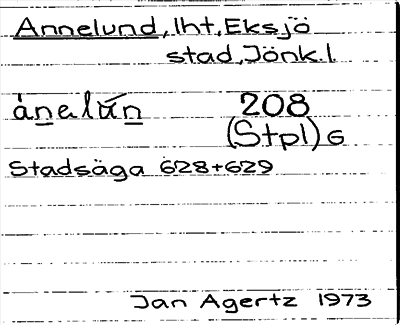 Annelund, lht, Eksjö
stad, Jönk.l.
ànelún 208
(Stpl) G
Stadsäga 628+629
Jan Agertz 1973